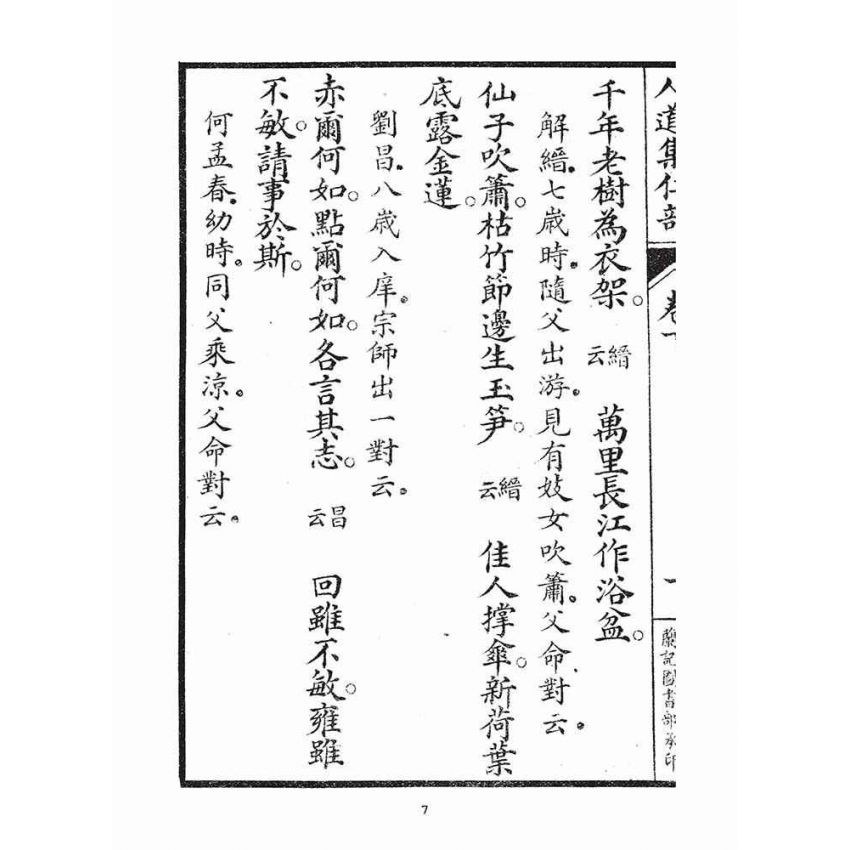 人道集仁部
卷一
一
蘭記圖書部承印
千年老樹為衣架。縉云 萬里長江作浴盆。
解縉七歲時。隨父出游。見有妓女吹簫。父命對云。
仙子吹簫。枯竹節邊生玉笋。縉云 佳人撑傘。新荷葉
底露金蓮。
劉昌八歲入庠。宗師出一對云。
赤爾何如。點爾何如。各言其志。昌云 回雖不敏。雍雖
不敏。請事於斯。
何孟春幼時。同父乘涼。父命對云。
7